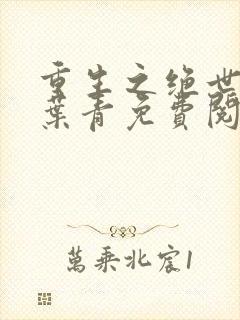 重生之绝世
葉青免費閱
萬乘北宸1